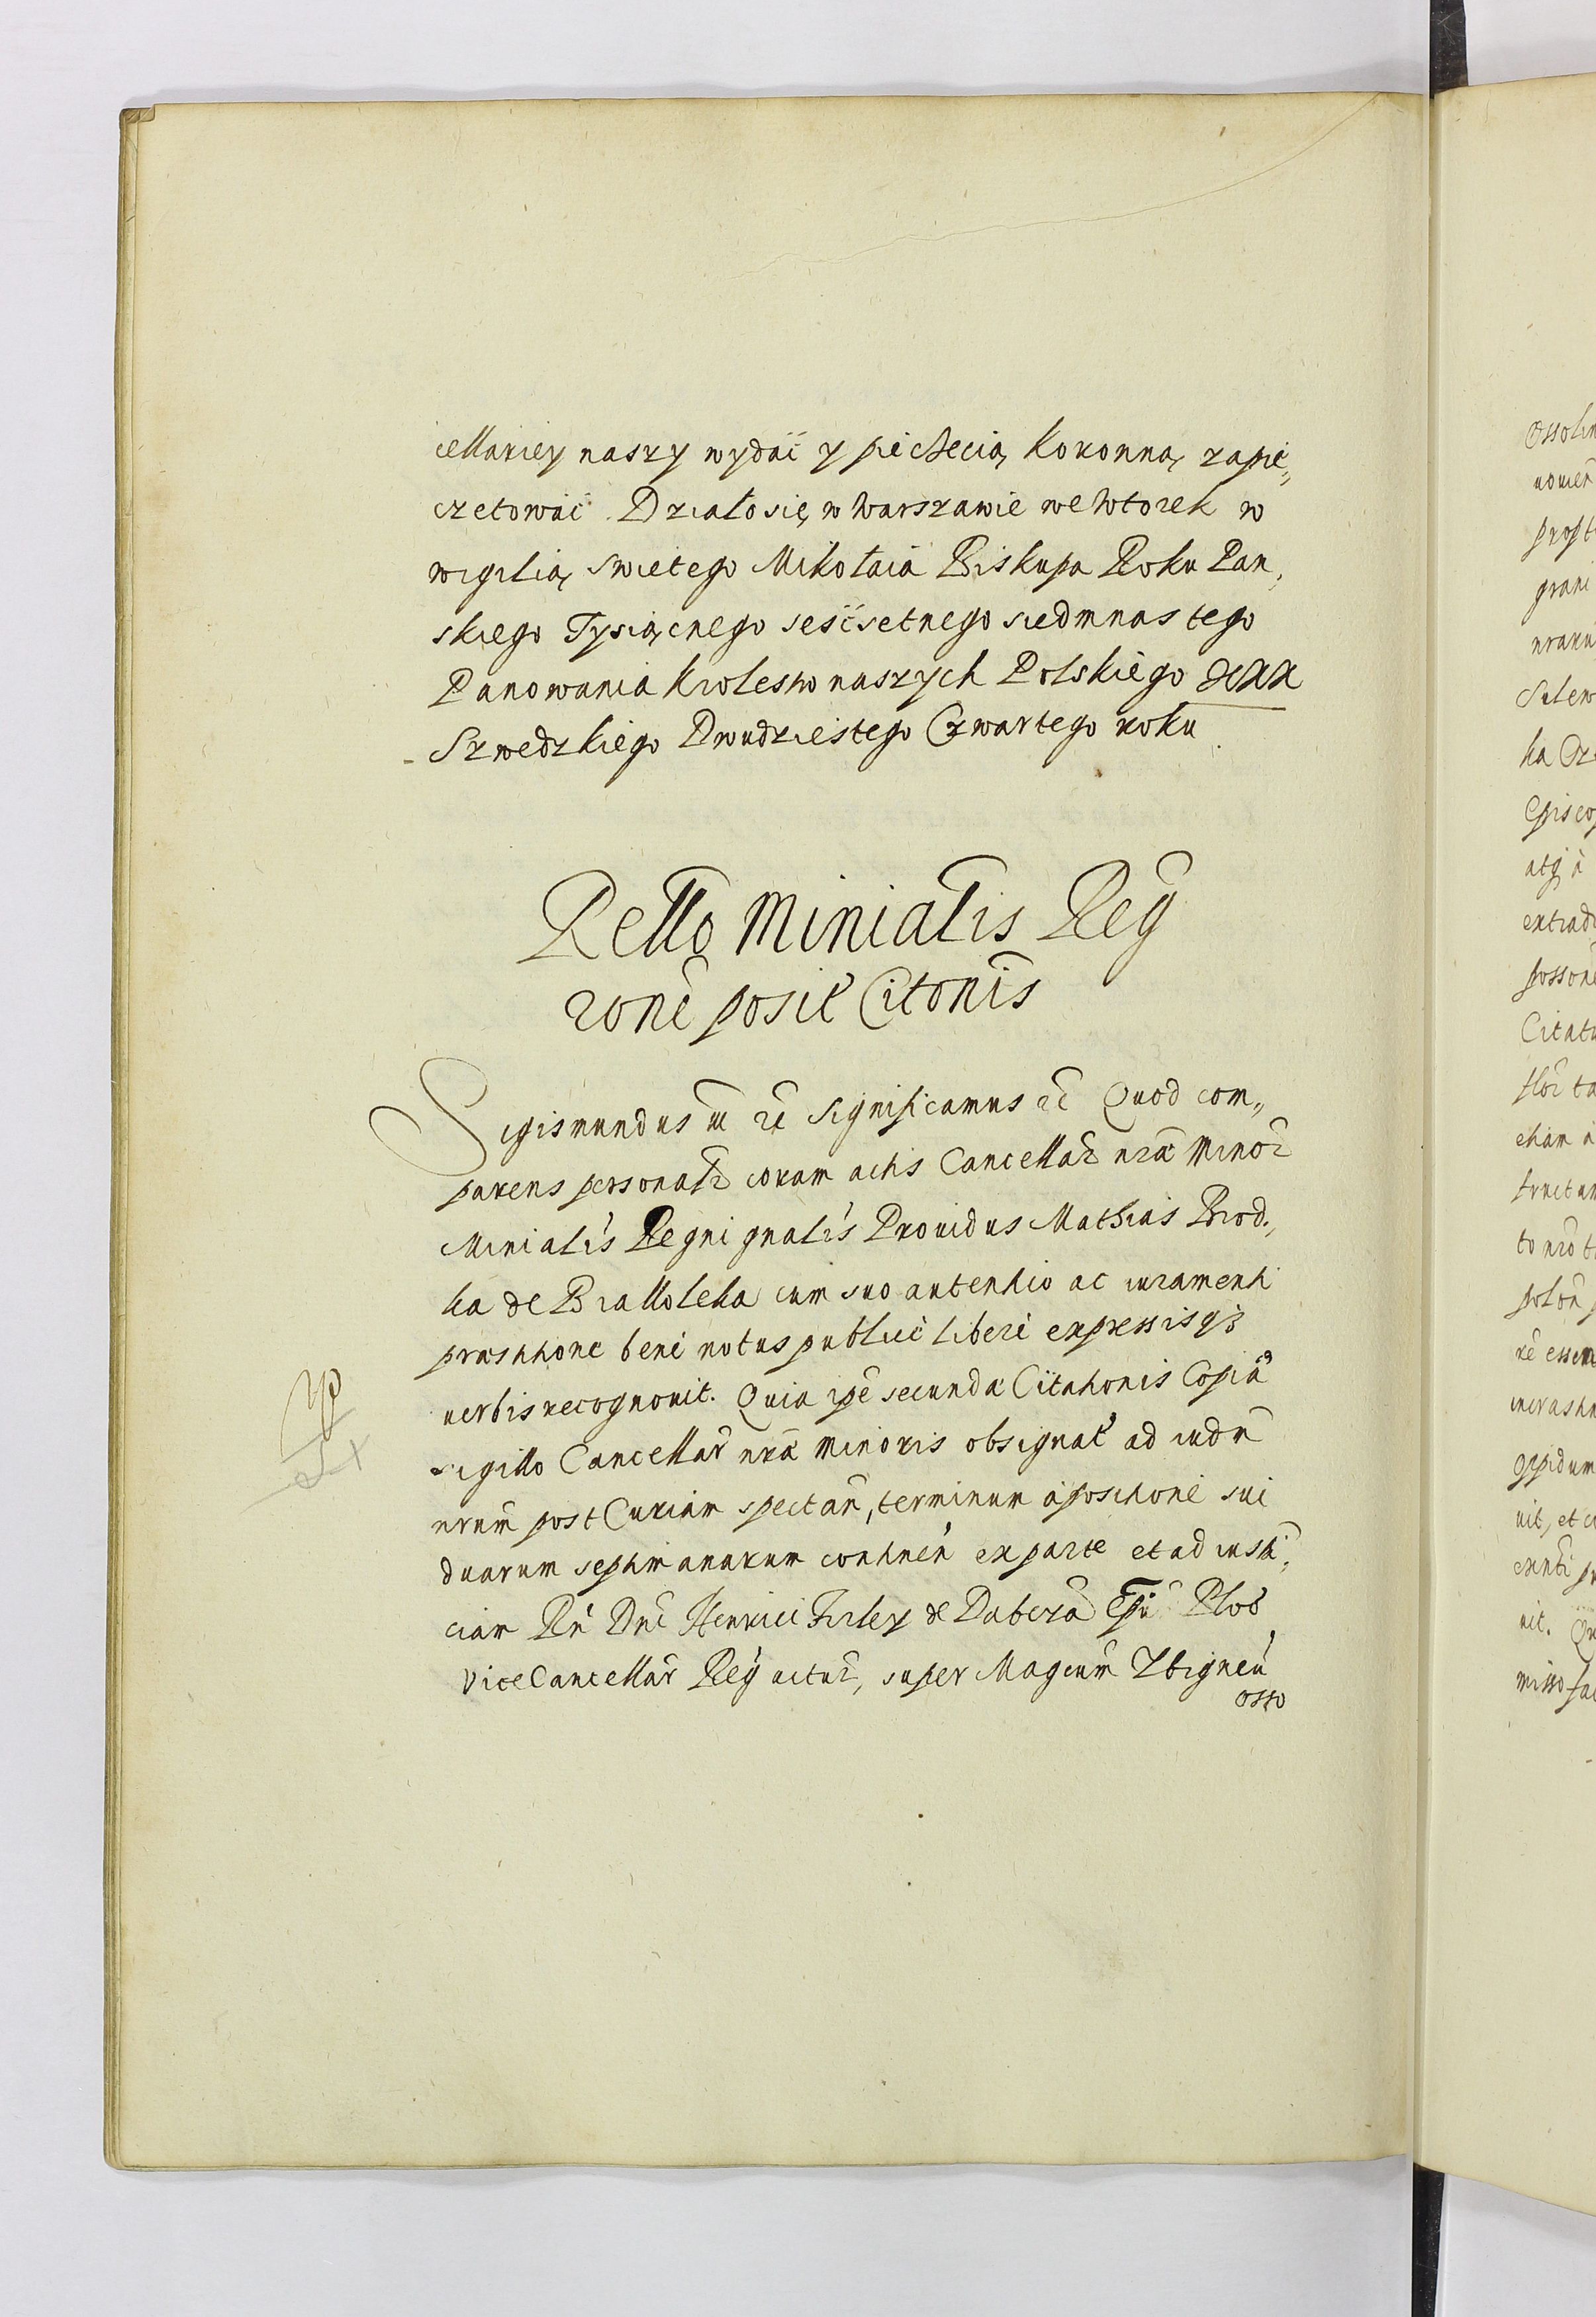 cellariey naszy wydać y piechecią Koronną zapie„
czetować Działo się w Warszawie we Wtorek w
wigilią swietego Mikołaia Biskupa Roku Pan,
skiego Tysiącnego sesćsetnego siedmnastego
Panowania Krolestw naszych Polskiego XXX
Szwedzkiego Dwudziestego Czwartego roku
Rello Minialis Reg
rone posit Citonis
Sigismundus III rc Significamus rc Quod com„
parens personalr coram actis Cancellar nra Minor
Minialis Regni gnalis Prouidus Mathias Brod,
ka de Bialloleka cum suo autentico ac iuramenti
præstitione bene notus publice libere expressisq3
uerbis recognouit. Quia ipe secunda Citationis Copia
sigillo Cancellar nra Minoris obsignat ad iudm
nrum post Curiam spectan, terminum a positione sui
duarum septimanarum continen ex parte et ad insti,
ciam Rn Dni Henrici Firley de Dabera Epi Ploc
ViceCancellar Reg actur, super Magcum Zbigneu
osso
Ossolin
uouem
propt
grani
Sulew
ka Oz
Episcop
atq a
extrad
posson
Citatu
etiam a
fructum
to nro t
polon p
re essem
oppidum
uit, et c
nit. Qu
misso fa